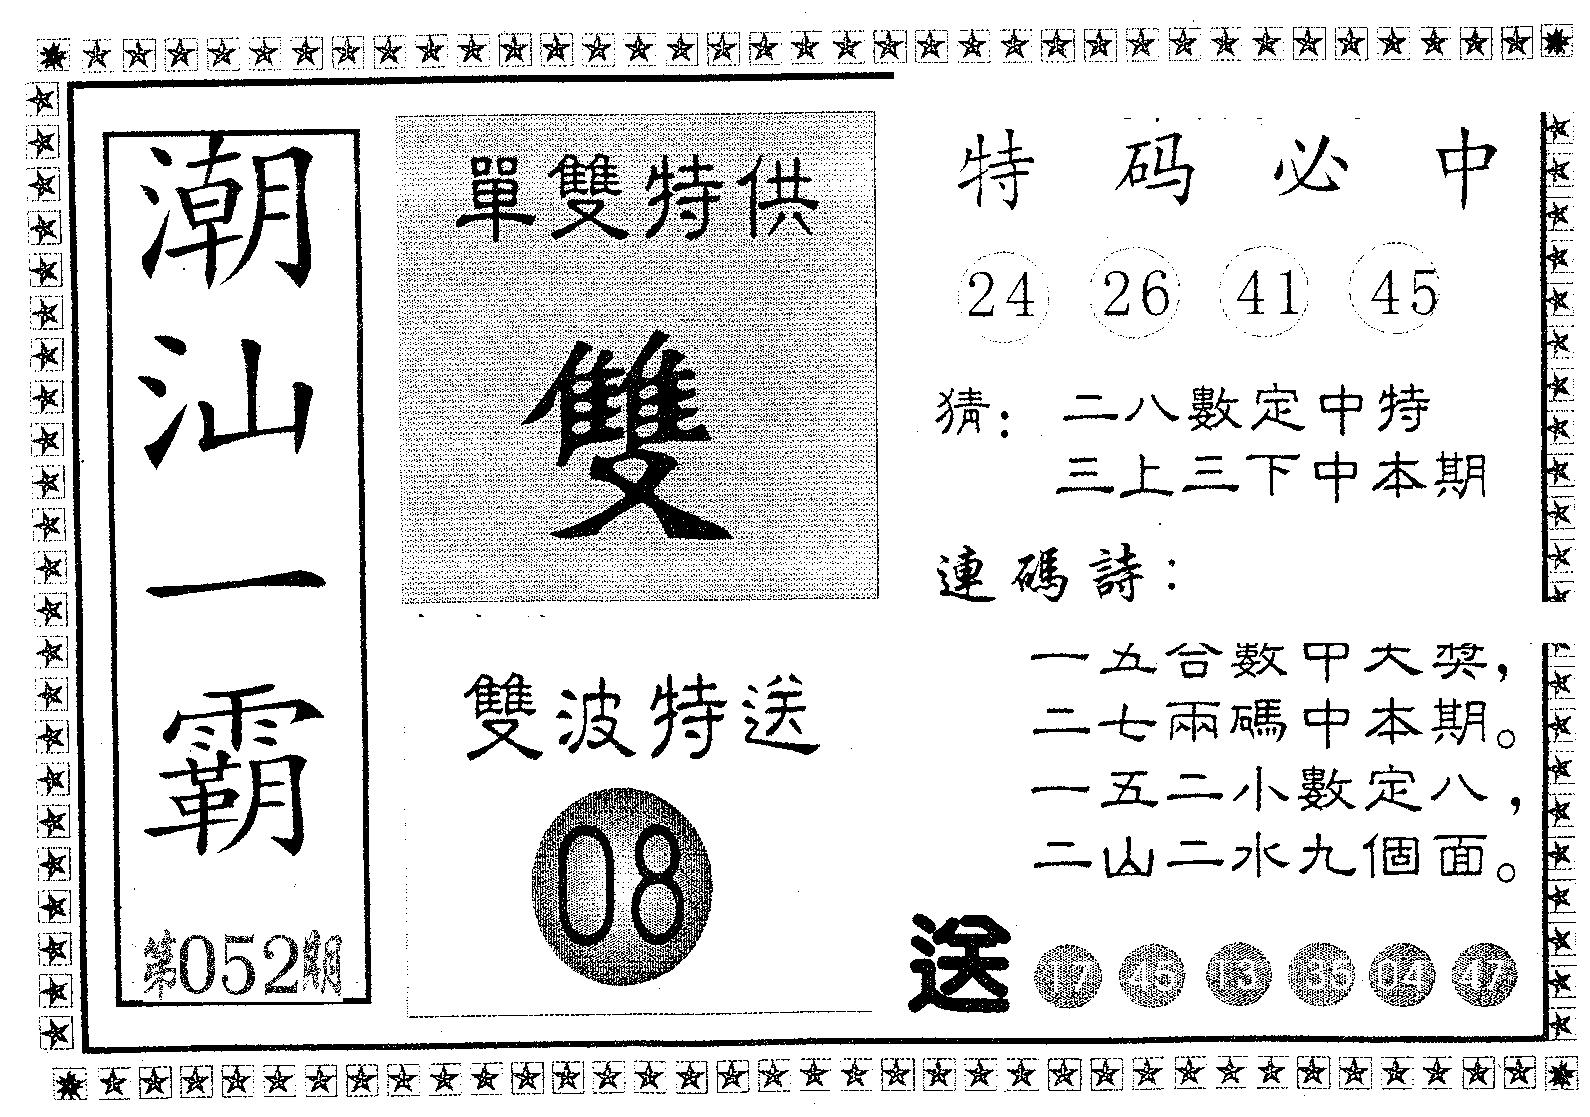 潮汕一霸
第052期
單雙特供
雙
雙波特送
08
特码必中
24 26 41 45
猜：二八數定中特
三上三下中本期
連碼詩：
一五合數中大獎，
二七兩碼中本期。
一五二小數定八，
二山二水九個面。
送 17 45 13 36 04 47